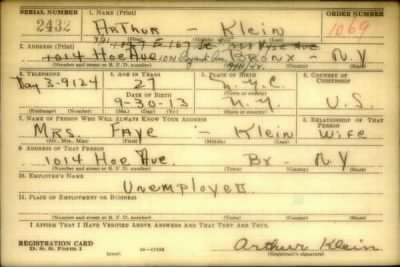 SERIAL NUMBER 1. NAME (Print) ORDER NUMBER
2432 Arthur - Klein 1069
2. ADDRESS (Print)
1014 Hoe Ave Bronx - N.Y
(Number and street or R. F. D. number) (Town) (County) (State)
3. TELEPHONE 4. AGE IN YEARS 5. PLACE OF BIRTH 6. COUNTRY OF CITIZENSHIP
Day 3-9124 27 N.Y.C.
DATE OF BIRTH (Town or county)
9-30-13 N.Y. U.S.
(Exchange) (Number) (Mo.) (Day) (Yr.) (State or country)
7. NAME OF PERSON WHO WILL ALWAYS KNOW YOUR ADDRESS 8. RELATIONSHIP OF THAT PERSON
Mrs. Faye - Klein Wife
(Mr., Mrs., Miss) (First) (Middle) (Last)
9. ADDRESS OF THAT PERSON
1014 Hoe Ave. Bx - NY
(Number and street or R. F. D. number) (Town) (County) (State)
10. EMPLOYER'S NAME
Unemployed
11. PLACE OF EMPLOYMENT OR BUSINESS
(Number and street or R. F. D. number) (Town) (County) (State)
I AFFIRM THAT I HAVE VERIFIED ABOVE ANSWERS AND THAT THEY ARE TRUE.
REGISTRATION CARD
D. S. S. Form 1 Arthur Klein
(Registrant's signature)